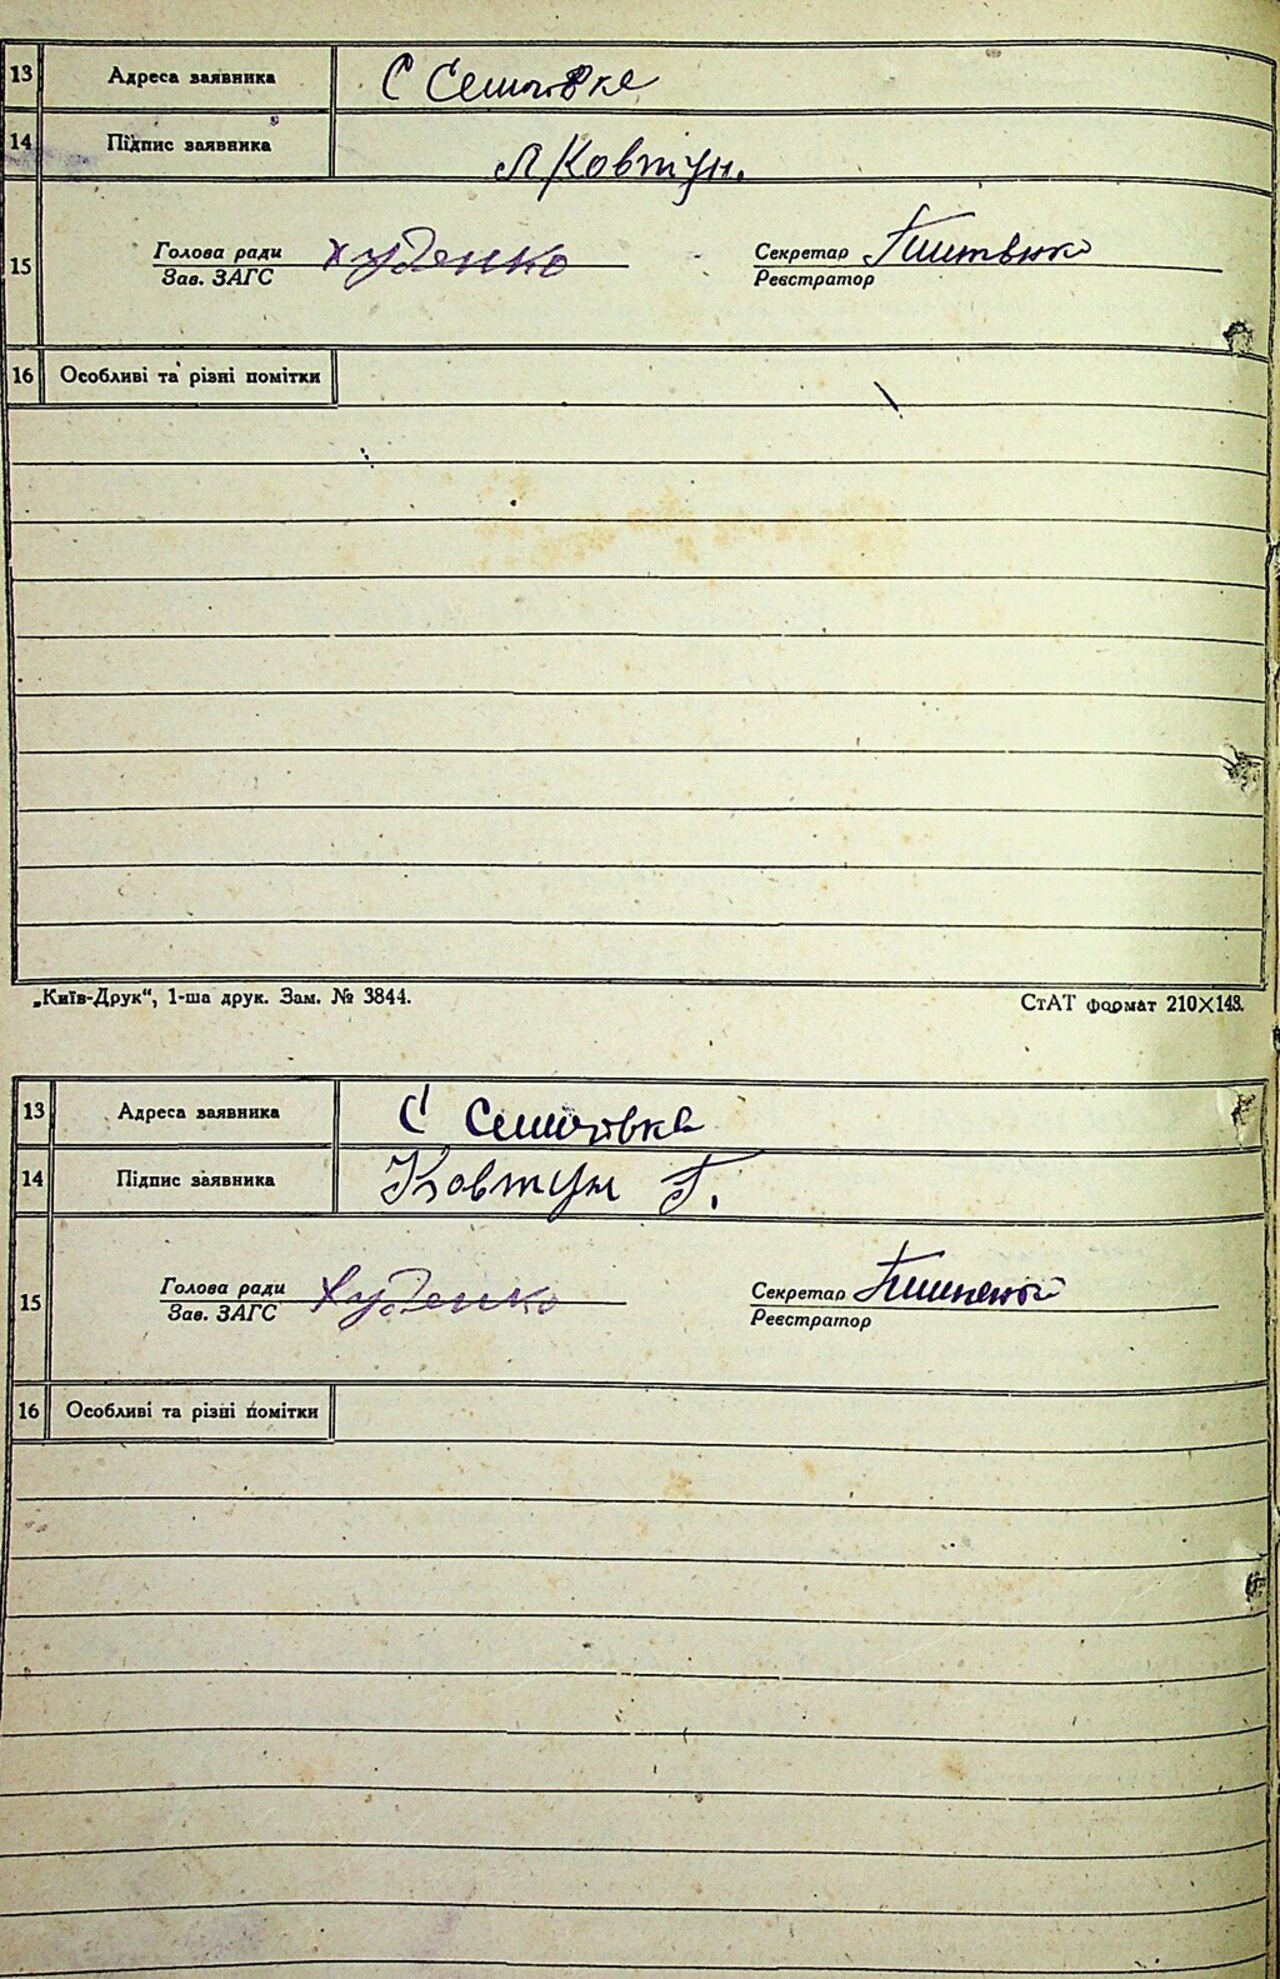 13 Адреса заявника С Семотівка
14 Підпис заявника Л Ковтун.
15 Голова ради Худенко Секретар
Зав. ЗАГС Реєстратор
16 Особливі та різні помітки
„Київ-Друк“, 1-ша друк. Зам. № 3844. СтАТ формат 210×148.
13 Адреса заявника С
14 Підпис заявника Ковтун Г.
15 Голова ради Худенко Секретар
Зав. ЗАГС Реєстратор
16 Особливі та різні помітки